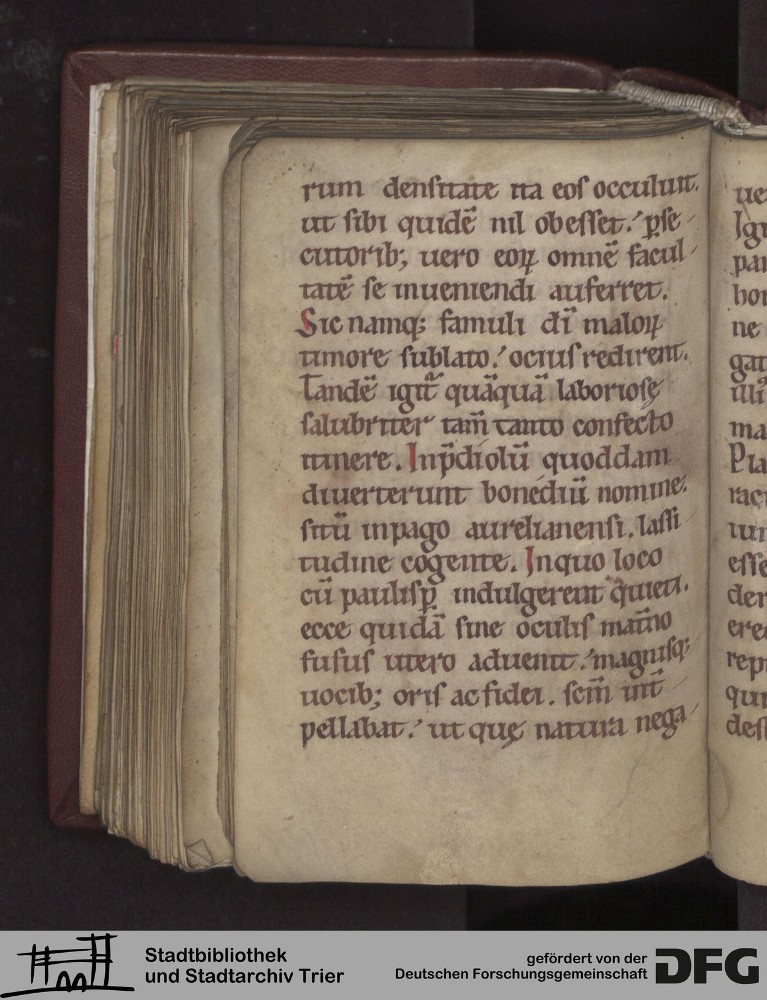 rum densitate ita eos occuluit.
ut sibi quidē nil obesset. p̱se
cutorib; uero eoꝝ omnē facul
tatē se inueniendi auferret.
Sic namq; famuli dī maloꝝ
timore sublato. ocius redirent.
Tandē igit᷑ quāquā laboriose
salubriter tam̄ tanto confecto
itinere. In p̄diolū quoddam
diuerterunt bonediū nomine.
sitū in pago aurelianensi. lassi
tudine cogente. In quo loco
cū paulisꝑ indulgerent quieti.
ecce quidā sine oculis mat̄no
fusus utero aduenit. magnisq;
uocib; oris ac fidei. sc̄m int̄
pellabat. ut quę natura nega
ue
Ig
par
bon
ne
gat
ma
Pla
rac
esse
der
ere
rep
qu
des
Stadtbibliothek
und Stadtarchiv Trier
gefördert von der
Deutschen Forschungsgemeinschaft
DFG